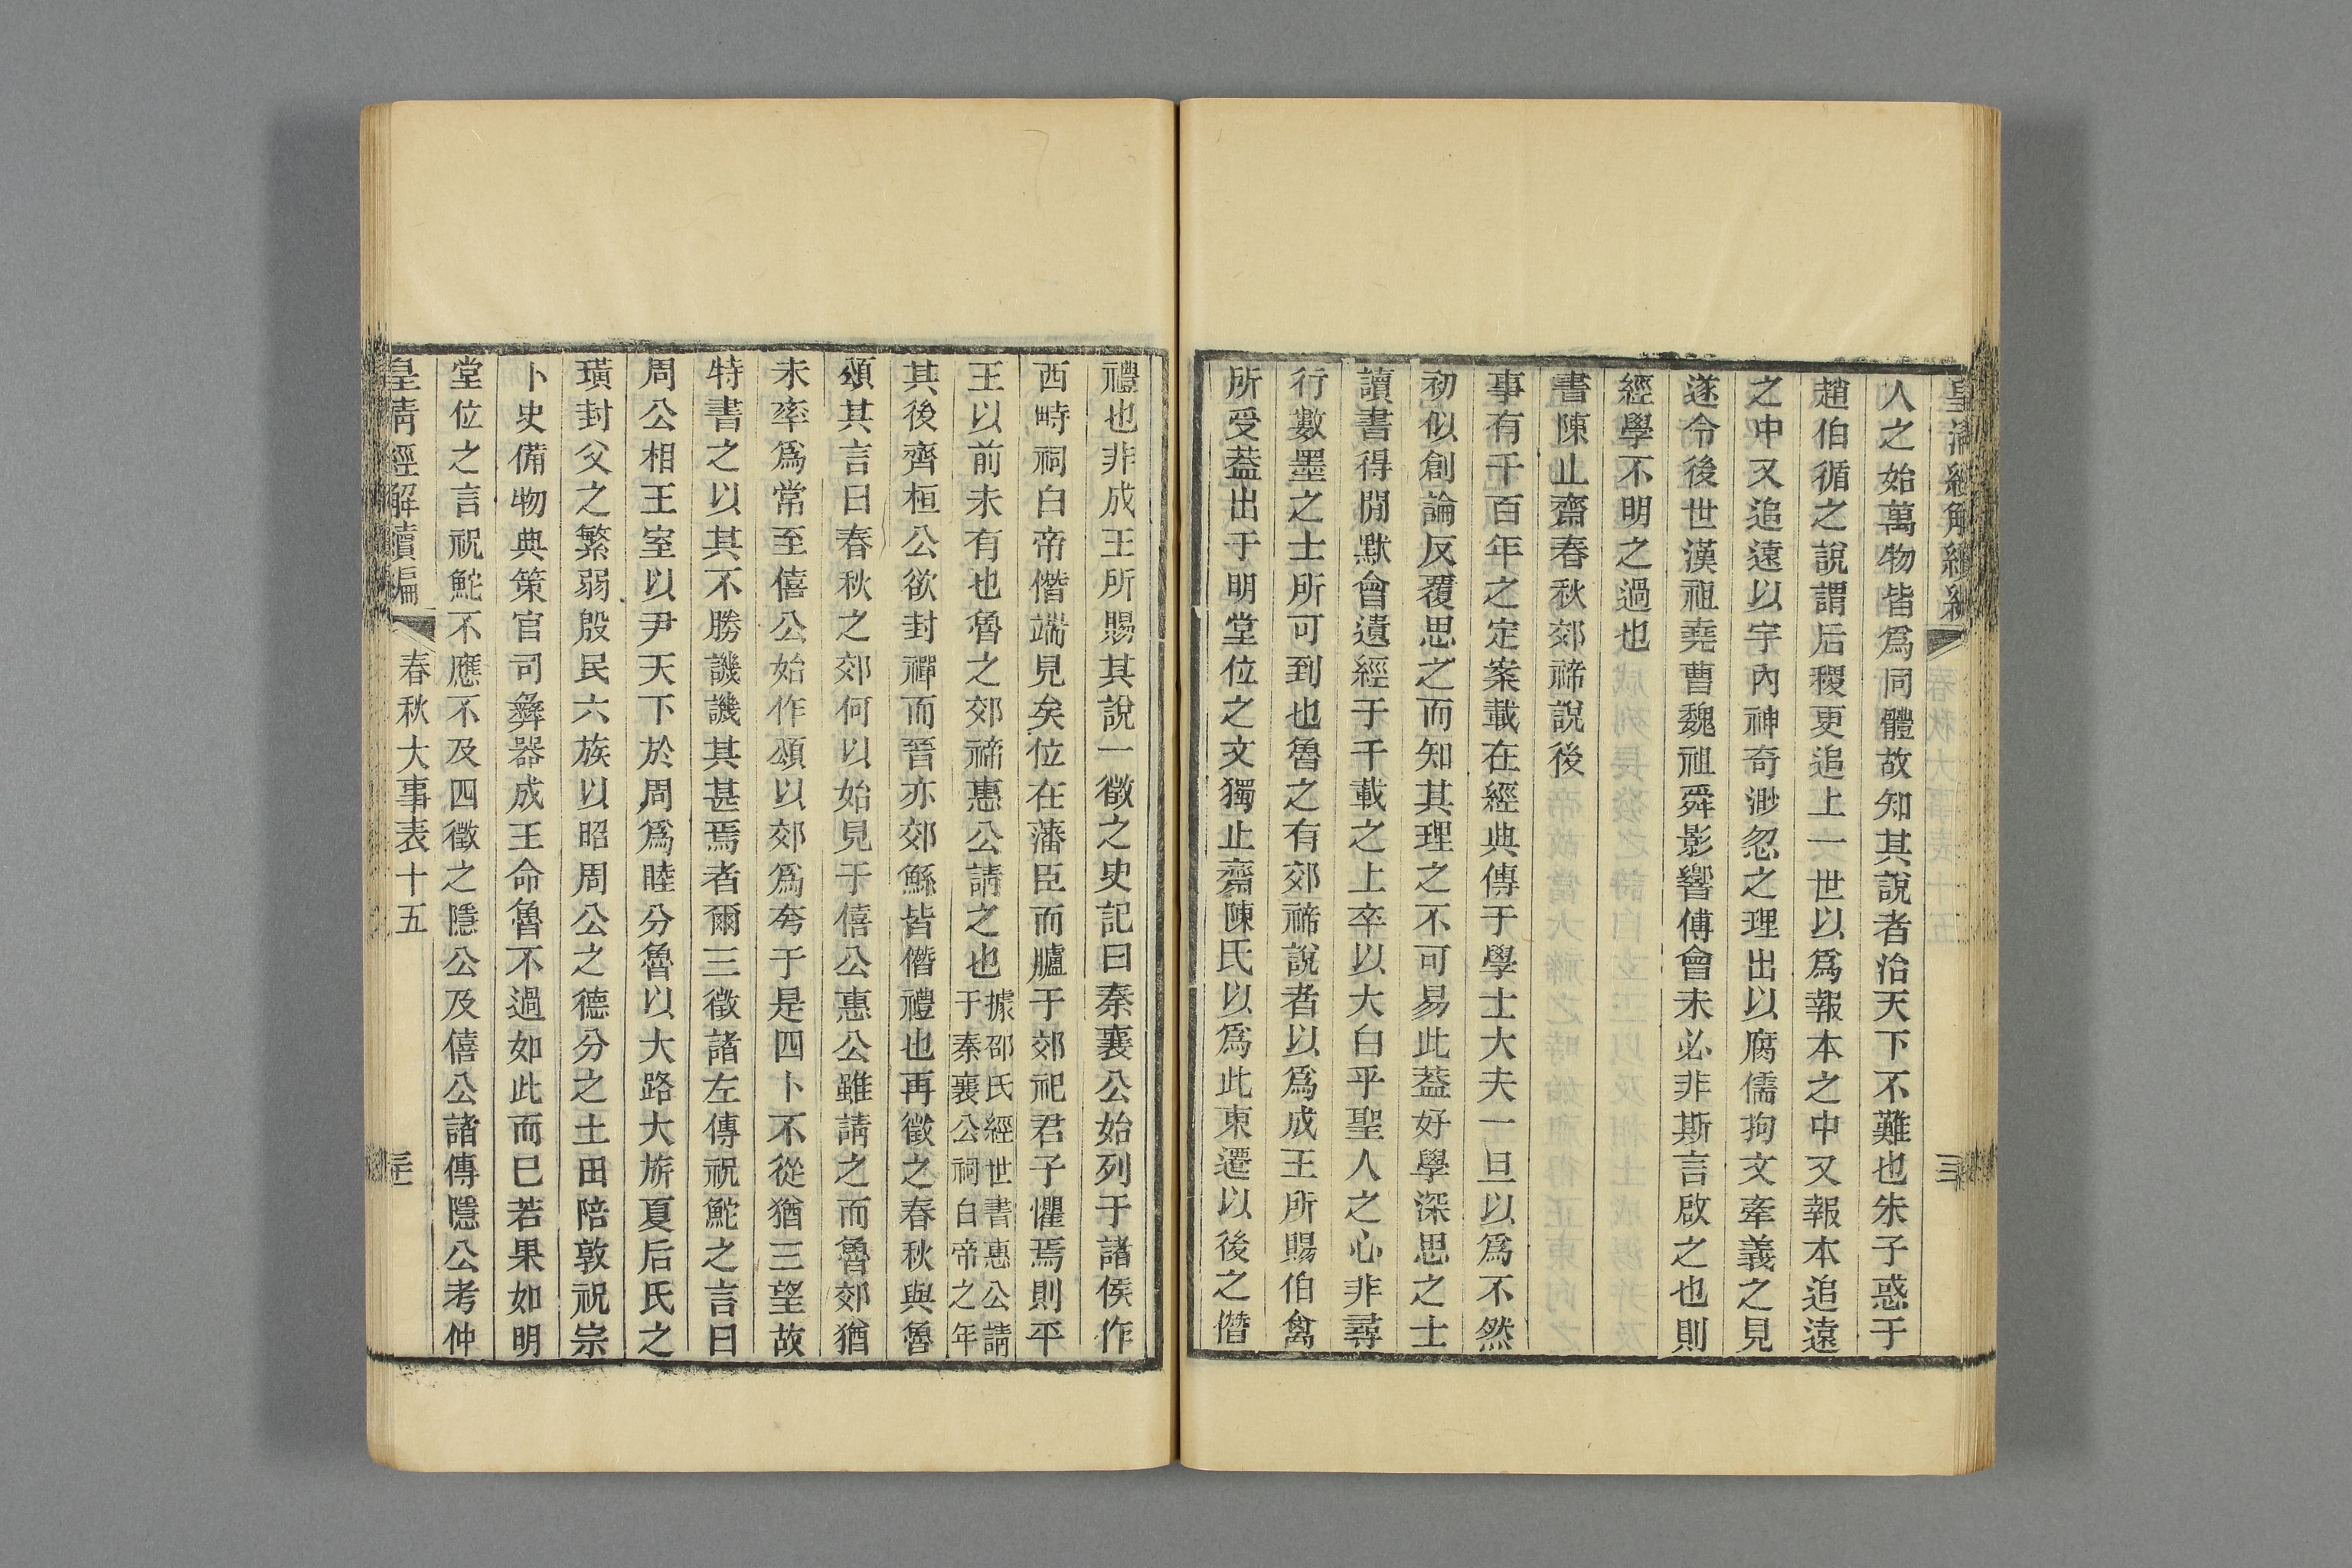 人之始萬物皆爲同體故知其說者治天下不難也朱子惑于
趙伯循之說謂后稷更追上一世以爲報本之中又報本追遠
之中又追遠以宇內神奇渺忽之理出以腐儒拘文牽義之見
遂令後世漢祖堯曹魏祖舜影響傅會未必非斯言啟之也則
經學不明之過也
書陳止齋春秋郊禘說後
事有千百年之定案載在經典傳于學士大夫一旦以爲不然
初似創論反覆思之而知其理之不可易此葢好學深思之士
讀書得閒默會遺經于千載之上卒以大白乎聖人之心非尋
行數墨之士所可到也魯之有郊禘說者以爲成王所賜伯禽
所受葢出于明堂位之文獨止齋陳氏以爲此東遷以後之僭
禮也非成王所賜其說一徵之史記曰秦襄公始列于諸侯作
西畤祠白帝僭端見矣位在藩臣而臚于郊祀君子懼焉則平
王以前未有也魯之郊禘惠公請之也據邵氏經世書惠公請
于秦襄公祠白帝之年
其後齊桓公欲封禪而晉亦郊鯀皆僭禮也再徵之春秋與魯
頌其言曰春秋之郊何以始見于僖公惠公雖請之而魯郊猶
未率爲常至僖公始作頌以郊爲夸于是四卜不從猶三望故
特書之以其不勝譏譏其甚焉者爾三徵諸左傳祝鮀之言曰
周公相王室以尹天下於周爲睦分魯以大路大旂夏后氏之
璜封父之繁弱殷民六族以昭周公之德分之土田陪敦祝宗
卜史備物典策官司彝器成王命魯不過如此而已若果如明
堂位之言祝鮀不應不及四徵之隱公及僖公諸傳隱公考仲
皇清經解續編
春秋大事表十五